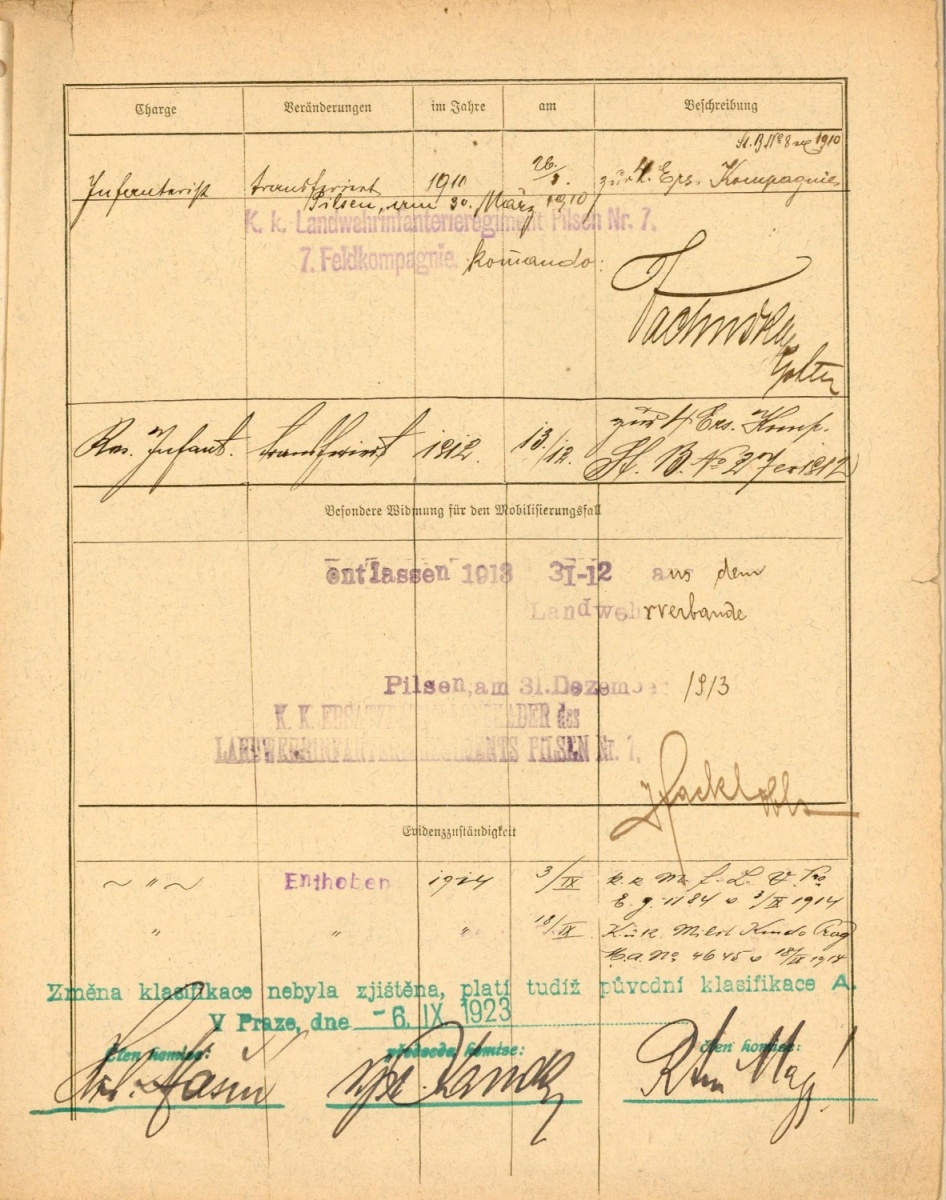 Charge Veränderungen im Jahre am Beschreibung
St. B. No 8 1910
Infanterist transferiert 1910 26./3. zur 4. Ers. Kompagnie
Pilsen, am 30. März 1910
K. k. Landwehrinfanterieregiment Pilsen Nr. 7.
7. Feldkompagnie. Komando:
Res. Infant. transferiert 1912. 13/12. zur 4 Ers. Komp.
St. B. No 1912
Besondere Widmung für den Mobilisierungsfall
entlassen 1913 31-12 aus dem
Landwehrverbande
Pilsen, am 31. Dezember 1913
K. K. des
LANDWEHRINFANTERIEREGIMENTS PILSEN Nr. 7.
Evidenzzuständigkeit
~ " ~ Enthoben 1914 3/IX k. k. M. f. L. V.
E. g. 1184 v 3/IX 1914
" " " 18/IX K.u.k. Milit Kmdo Prag
M.A. No 4645 v 18/IX 1914
Změna klasifikace nebyla zjištěna, platí tudíž původní klasifikace A.
V Praze, dne -6. IX 1923
člen komise: předseda komise: člen komise: